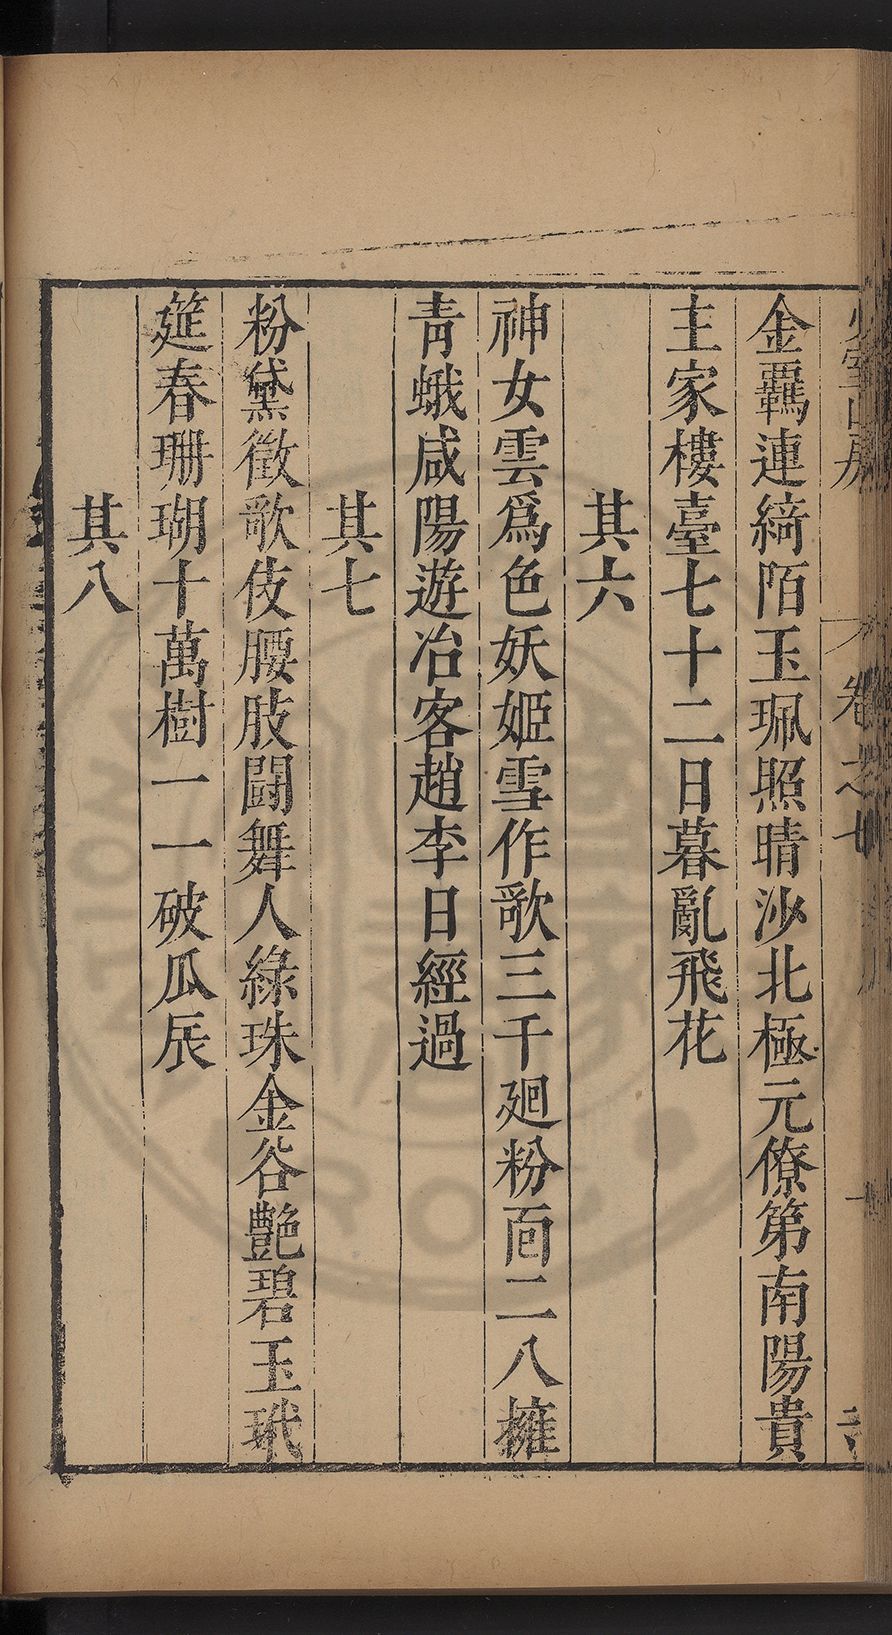 金羈連綺陌玉珮照晴沙北極元僚第南陽貴
主家樓臺七十二日暮亂飛花
其六
神女雲爲色妖姬雪作歌三千廻粉面二八擁
青蛾咸陽遊冶客趙李日經過
其七
粉黛徵歌伎腰肢鬬舞人綠珠金谷艷碧玉玳
筵春珊瑚十萬樹一一破瓜辰
其八
卷之